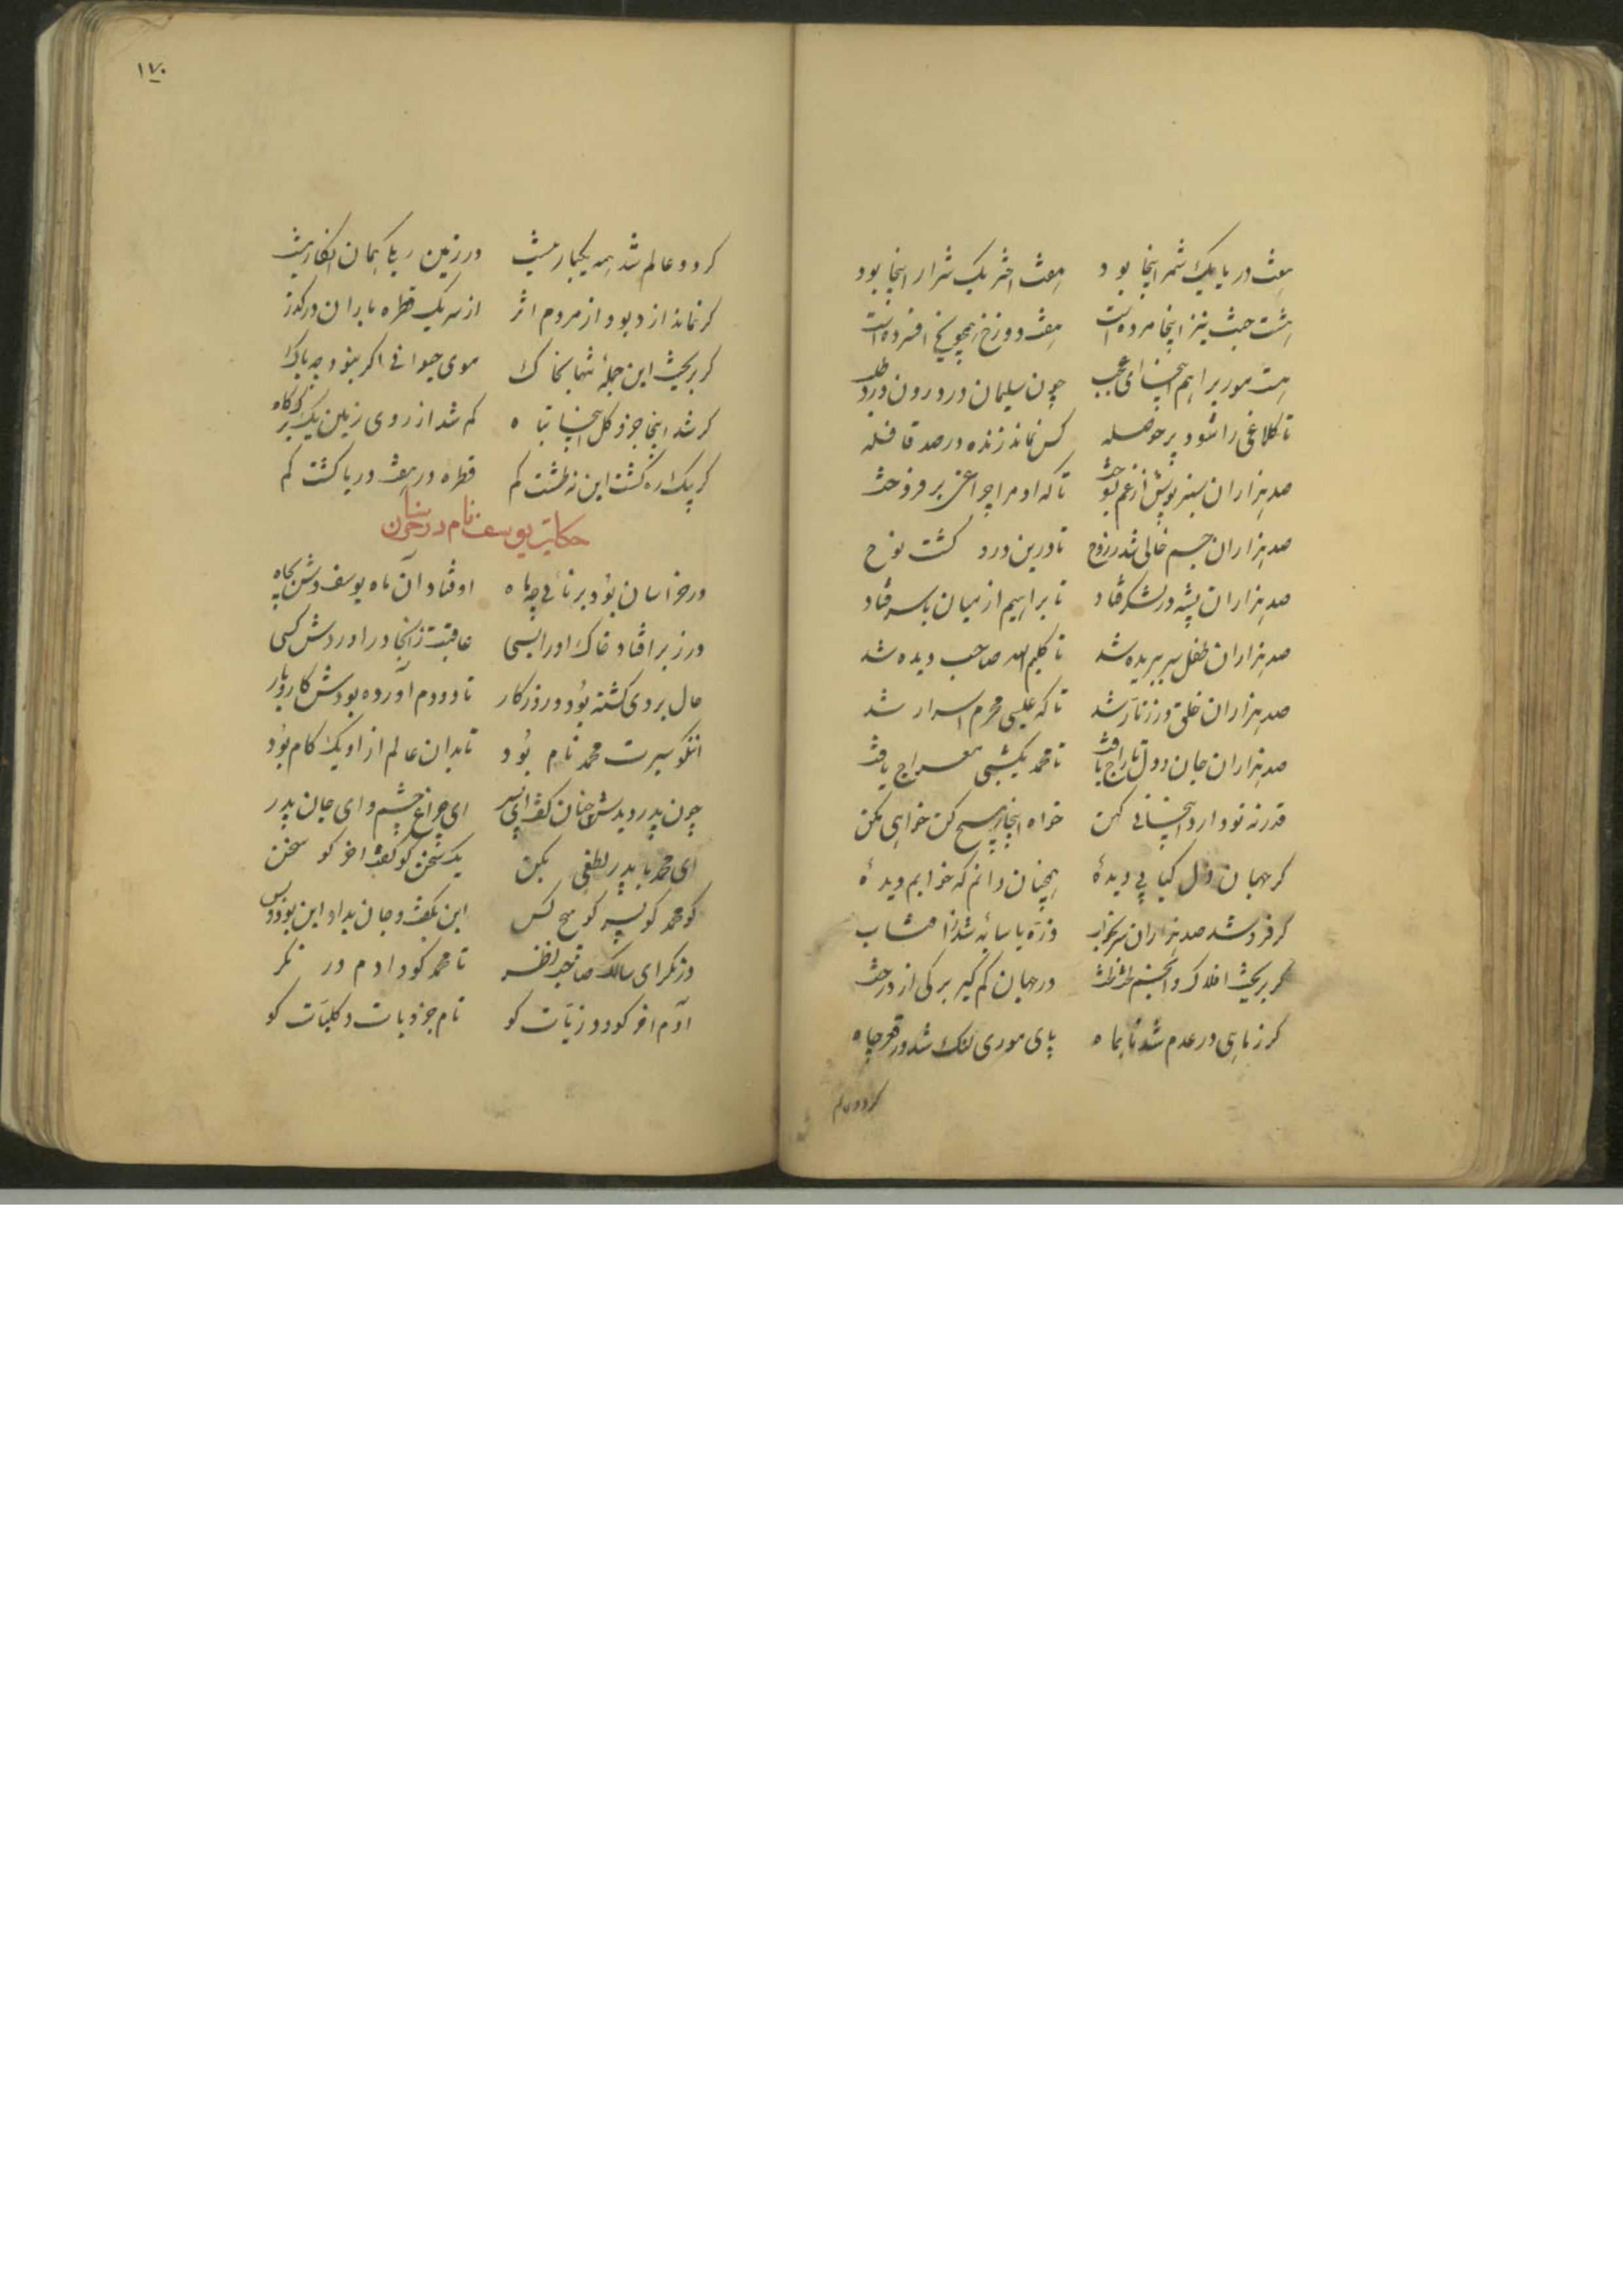 هفت دریا یک شمر اینجا بود هفت اختر یک شرار اینجا بود
هشت جنت نیز اینجا مرده است هفت دوزخ همچو یخ افسرده است
هست مور براهم اینجا ای عجب چون سلیمان درد و رون درد طلب
تا کلاغی را شود پر حوصله کس نماند زنده در صد قافله
صد هزاران سبز پوش از غم بسوخت تا که اومرا چراغی برفروخت
صد هزاران جسم خالی شد ز روح تا درین درد کشت نوح
صد هزاران پشه در لشکر فتاد تا براهیم از میان با سر فتاد
صد هزاران طفل سر ببریده شد تا کلیم الله صاحب دیده شد
صد هزاران خلق در زنار شد تا که عیسی محرم اسرار شد
صد هزاران جان و دل تاراج یافت تا محمد یکشبی معراج یافت
قدر نه نو دارد اینجا نی کهن خواه اینجا هیچ کن خواهی مکن
کر جهان دل کبابی دیدهٔ همچنان دانم که خوابم دیدهٔ
کر فرو شد صد هزاران سر بخواب ذره با سایه شد ز آفتاب
کر بریخت افلاک و انجم لخت لخت در جهان کم کیر برکی از درخت
کر ز ماهی در عدم شد تا بماه پای موری لنک شد در قعر چاه
کر دو عالم
۱۷۰
کر دو عالم شد همه یکبار نیست در زمین ریکی همان انکار نیست
کر نماند از دیو و از مردم اثر از سر یک قطره باران درکذر
کر بریخت این جملهٔ تنها بخاک موی حیوانی اکر نبود چه باک
کر شد اینجا جزو کل اینجا تباه کم شد از روی زمین یک برک کاه
کر بیک ره کشت این نه طشت کم قطرهٔ در هفت دریا کشت کم
حکایت یوسف نام در خراسان
در خراسان بود برنائی چو ماه اوفتاد آن ماه یوسف وش بچاه
در زبر افتاد خاک او را بسی عاقبت ز آنجا در آوردش کسی
حال بر وی کشته بود و روزکار تا دو دم آورده بودش کار و بار
آن نکو سیرت محمد نام بود تا بدان عالم از او یک کام بود
چون پدر دیدش چنان کفت ای پسر ای چراغ چشم و ای جان پدر
ای محمد با پدر لطفی بکن یک سخن کو کفت آخر کو سخن
کو محمد کو پسر کو هیچ کس این بکفت و جان بداد این بود و بس
در نکر ای سالک صاحب نظر تا محمد کو و ادم در نکر
آدم آخر کو و ذریات کو نام جزویات و کلیات کو